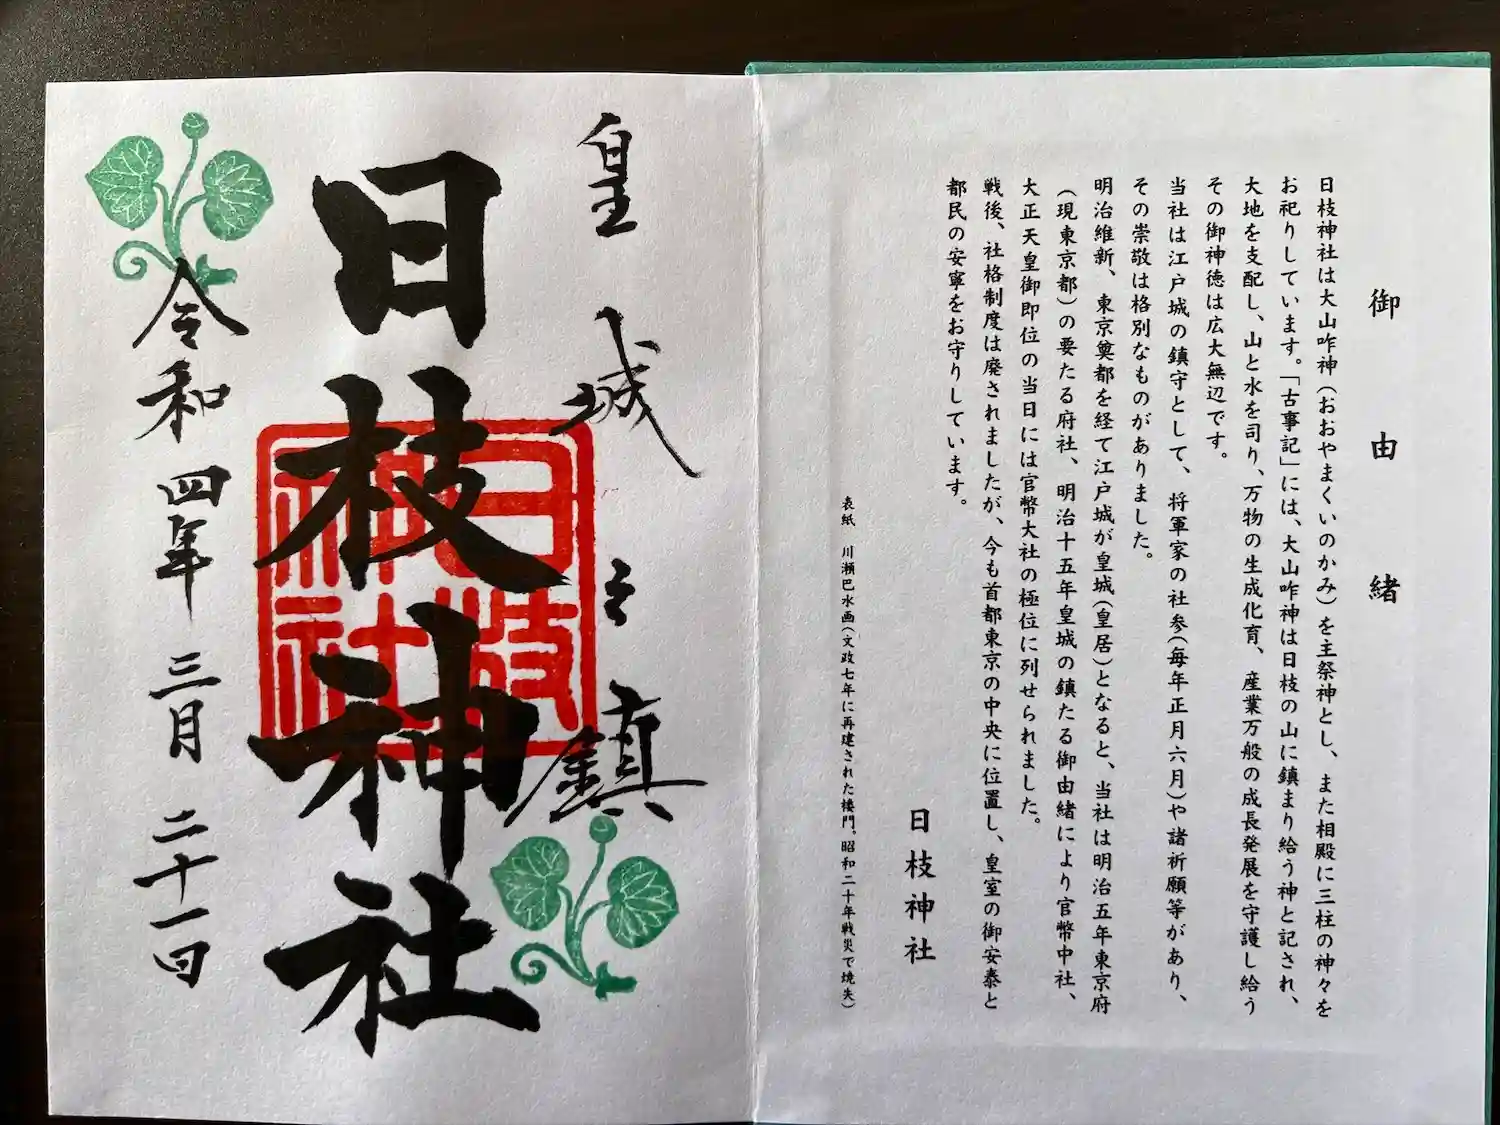 御由緒
日枝神社は大山咋神（おおやまくいのかみ）を主祭神とし、また相殿に三柱の神々を
お祀りしています。「古事記」には、大山咋神は日枝の山に鎮まり給う神と記され、
大地を支配し、山と水を司り、万物の生成化育、産業万般の成長発展を守護し給う
その御神徳は広大無辺です。
当社は江戸城の鎮守として、将軍家の社参（毎年正月六月）や諸祈願等があり、
その崇敬は格別なものがありました。
明治維新、東京奠都を経て江戸城が皇城（皇居）となると、当社は明治五年東京府
（現東京都）の要たる府社、明治十五年皇城の鎮たる御由緒により官幣中社、
大正天皇御即位の当日には官幣大社の極位に列せられました。
戦後、社格制度は廃されましたが、今も首都東京の中央に位置し、皇室の御安泰と
都民の安寧をお守りしています。
日枝神社
表紙　川瀬巴水画（文政七年に再建された楼門。昭和二十年戦災で焼失）
皇城之鎮
日枝神社
日枝
神社
令和四年三月二十一日